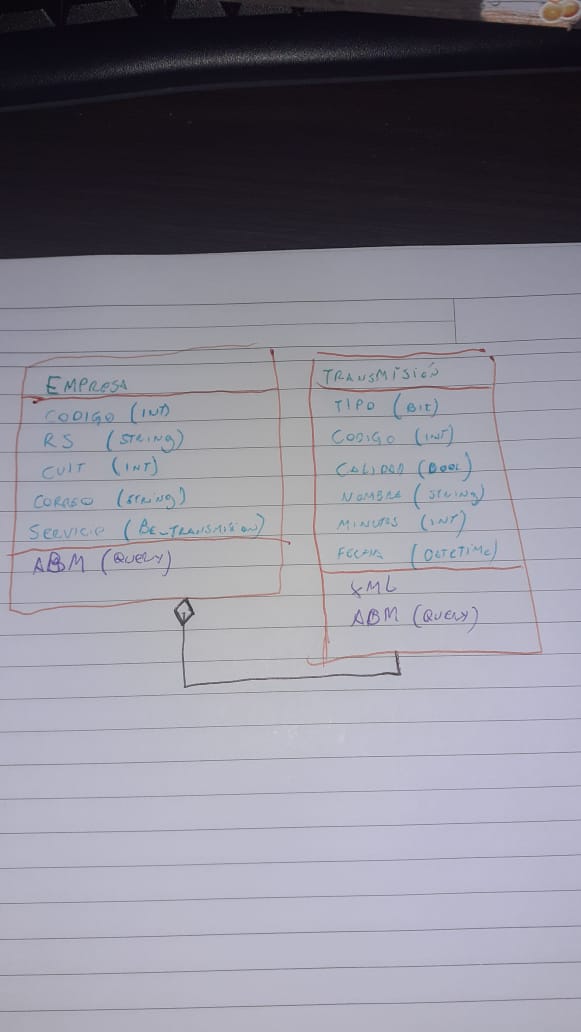 EMPRESA
CODIGO (INT)
RS (STRING)
CUIT (INT)
CORREO (STRING)
SERVICIO (BE_TRANSMISION)
ABM (QUERY)
TRANSMISIÓN
TIPO (BIT)
CODIGO (INT)
CALIDAD (BOOL)
NOMBRE (STRING)
MINUTOS (INT)
FECHA (DATETIME)
XML
ABM (QUERY)